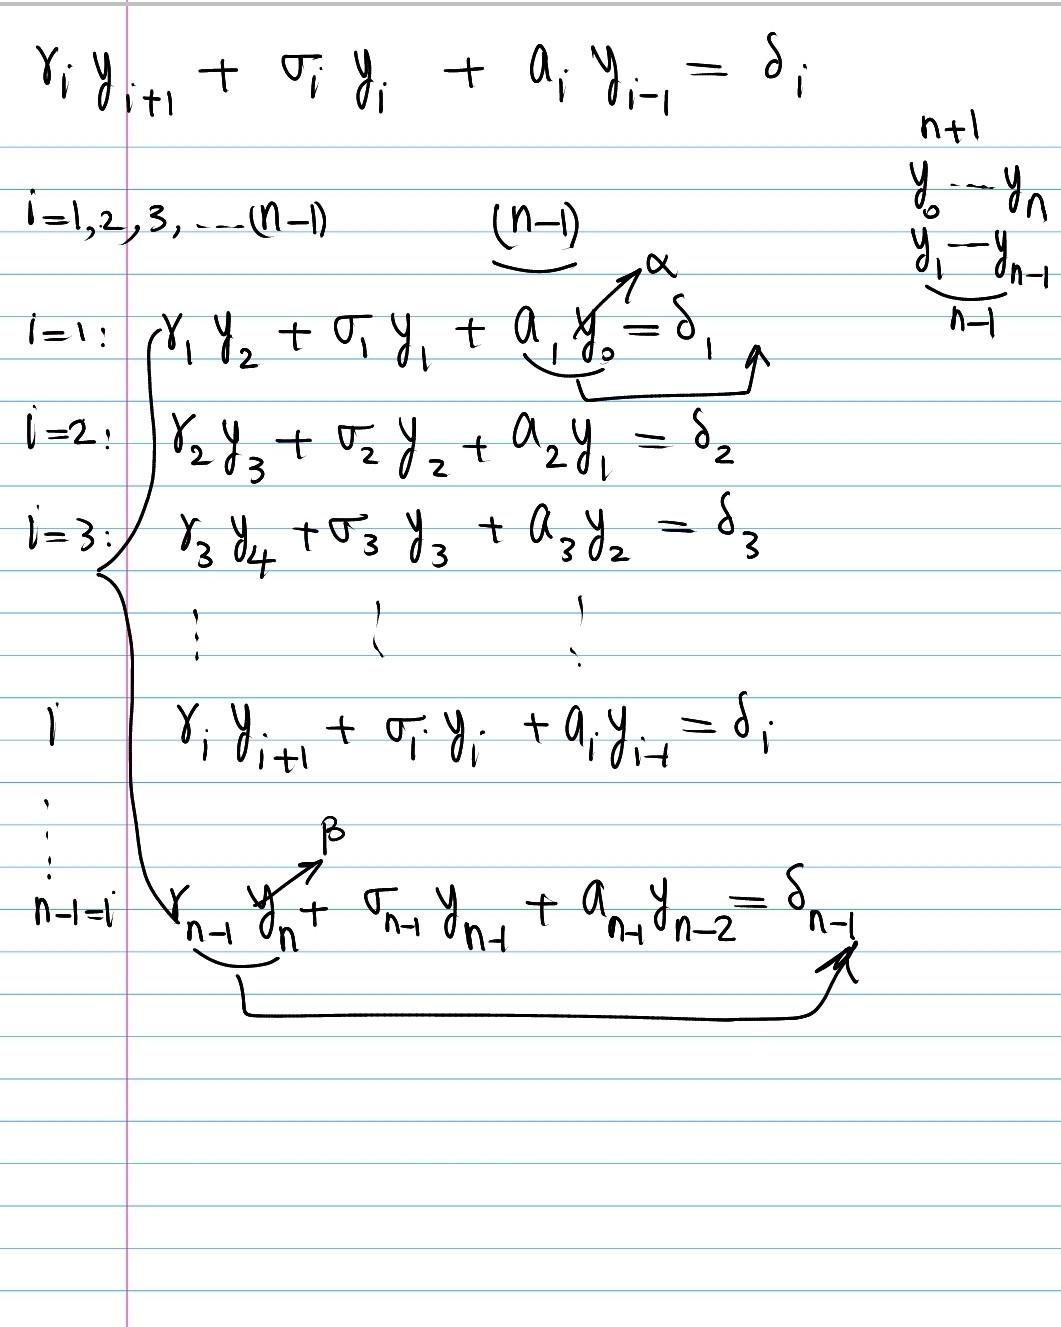 γᵢ yᵢ₊₁ + σᵢ yᵢ + aᵢ yᵢ₋₁ = δᵢ
n+1
y₀ --- yₙ
i=1,2,3, ---(n-1)
(n-1)
y₁ — yₙ₋₁
n-1
α
i=1: γ₁ y₂ + σ₁ y₁ + a₁ y₀ = δ₁
i=2: γ₂ y₃ + σ₂ y₂ + a₂ y₁ = δ₂
i=3: γ₃ y₄ + σ₃ y₃ + a₃ y₂ = δ₃
i γᵢ yᵢ₊₁ + σᵢ yᵢ + aᵢ yᵢ₋₁ = δᵢ
β
n-1=i γₙ₋₁ yₙ + σₙ₋₁ yₙ₋₁ + aₙ₋₁ yₙ₋₂ = δₙ₋₁